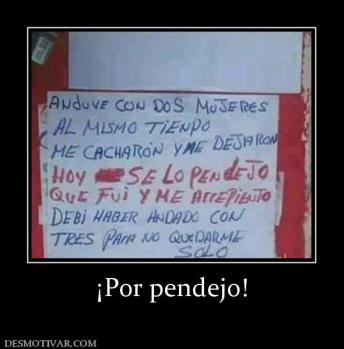 ANDUVE CON DOS MUJERES
AL MISMO TIENPO
ME CACHARON Y ME DEJARON
HOY SE LO PENDEJO
QUE FUI Y ME ARREPIENTO
DEBI HABER ANDADO CON
TRES PARA NO QUEDARME
SOLO
¡Por pendejo!
DESMOTIVAR.COM